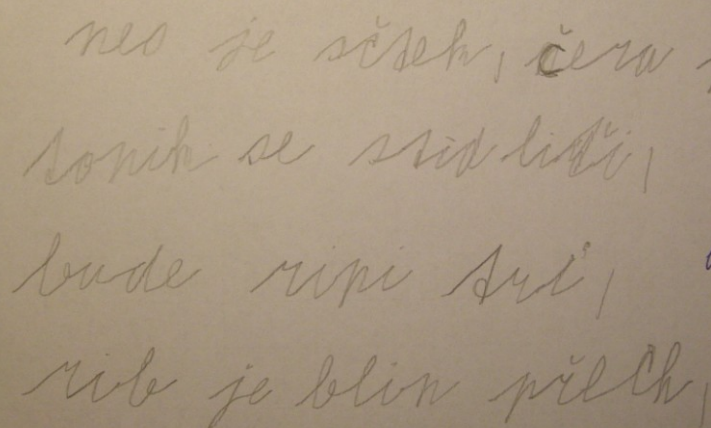 neo je sčtek, čera
tonik se stidliči,
bude ripi tri,
rib je blin přlch,